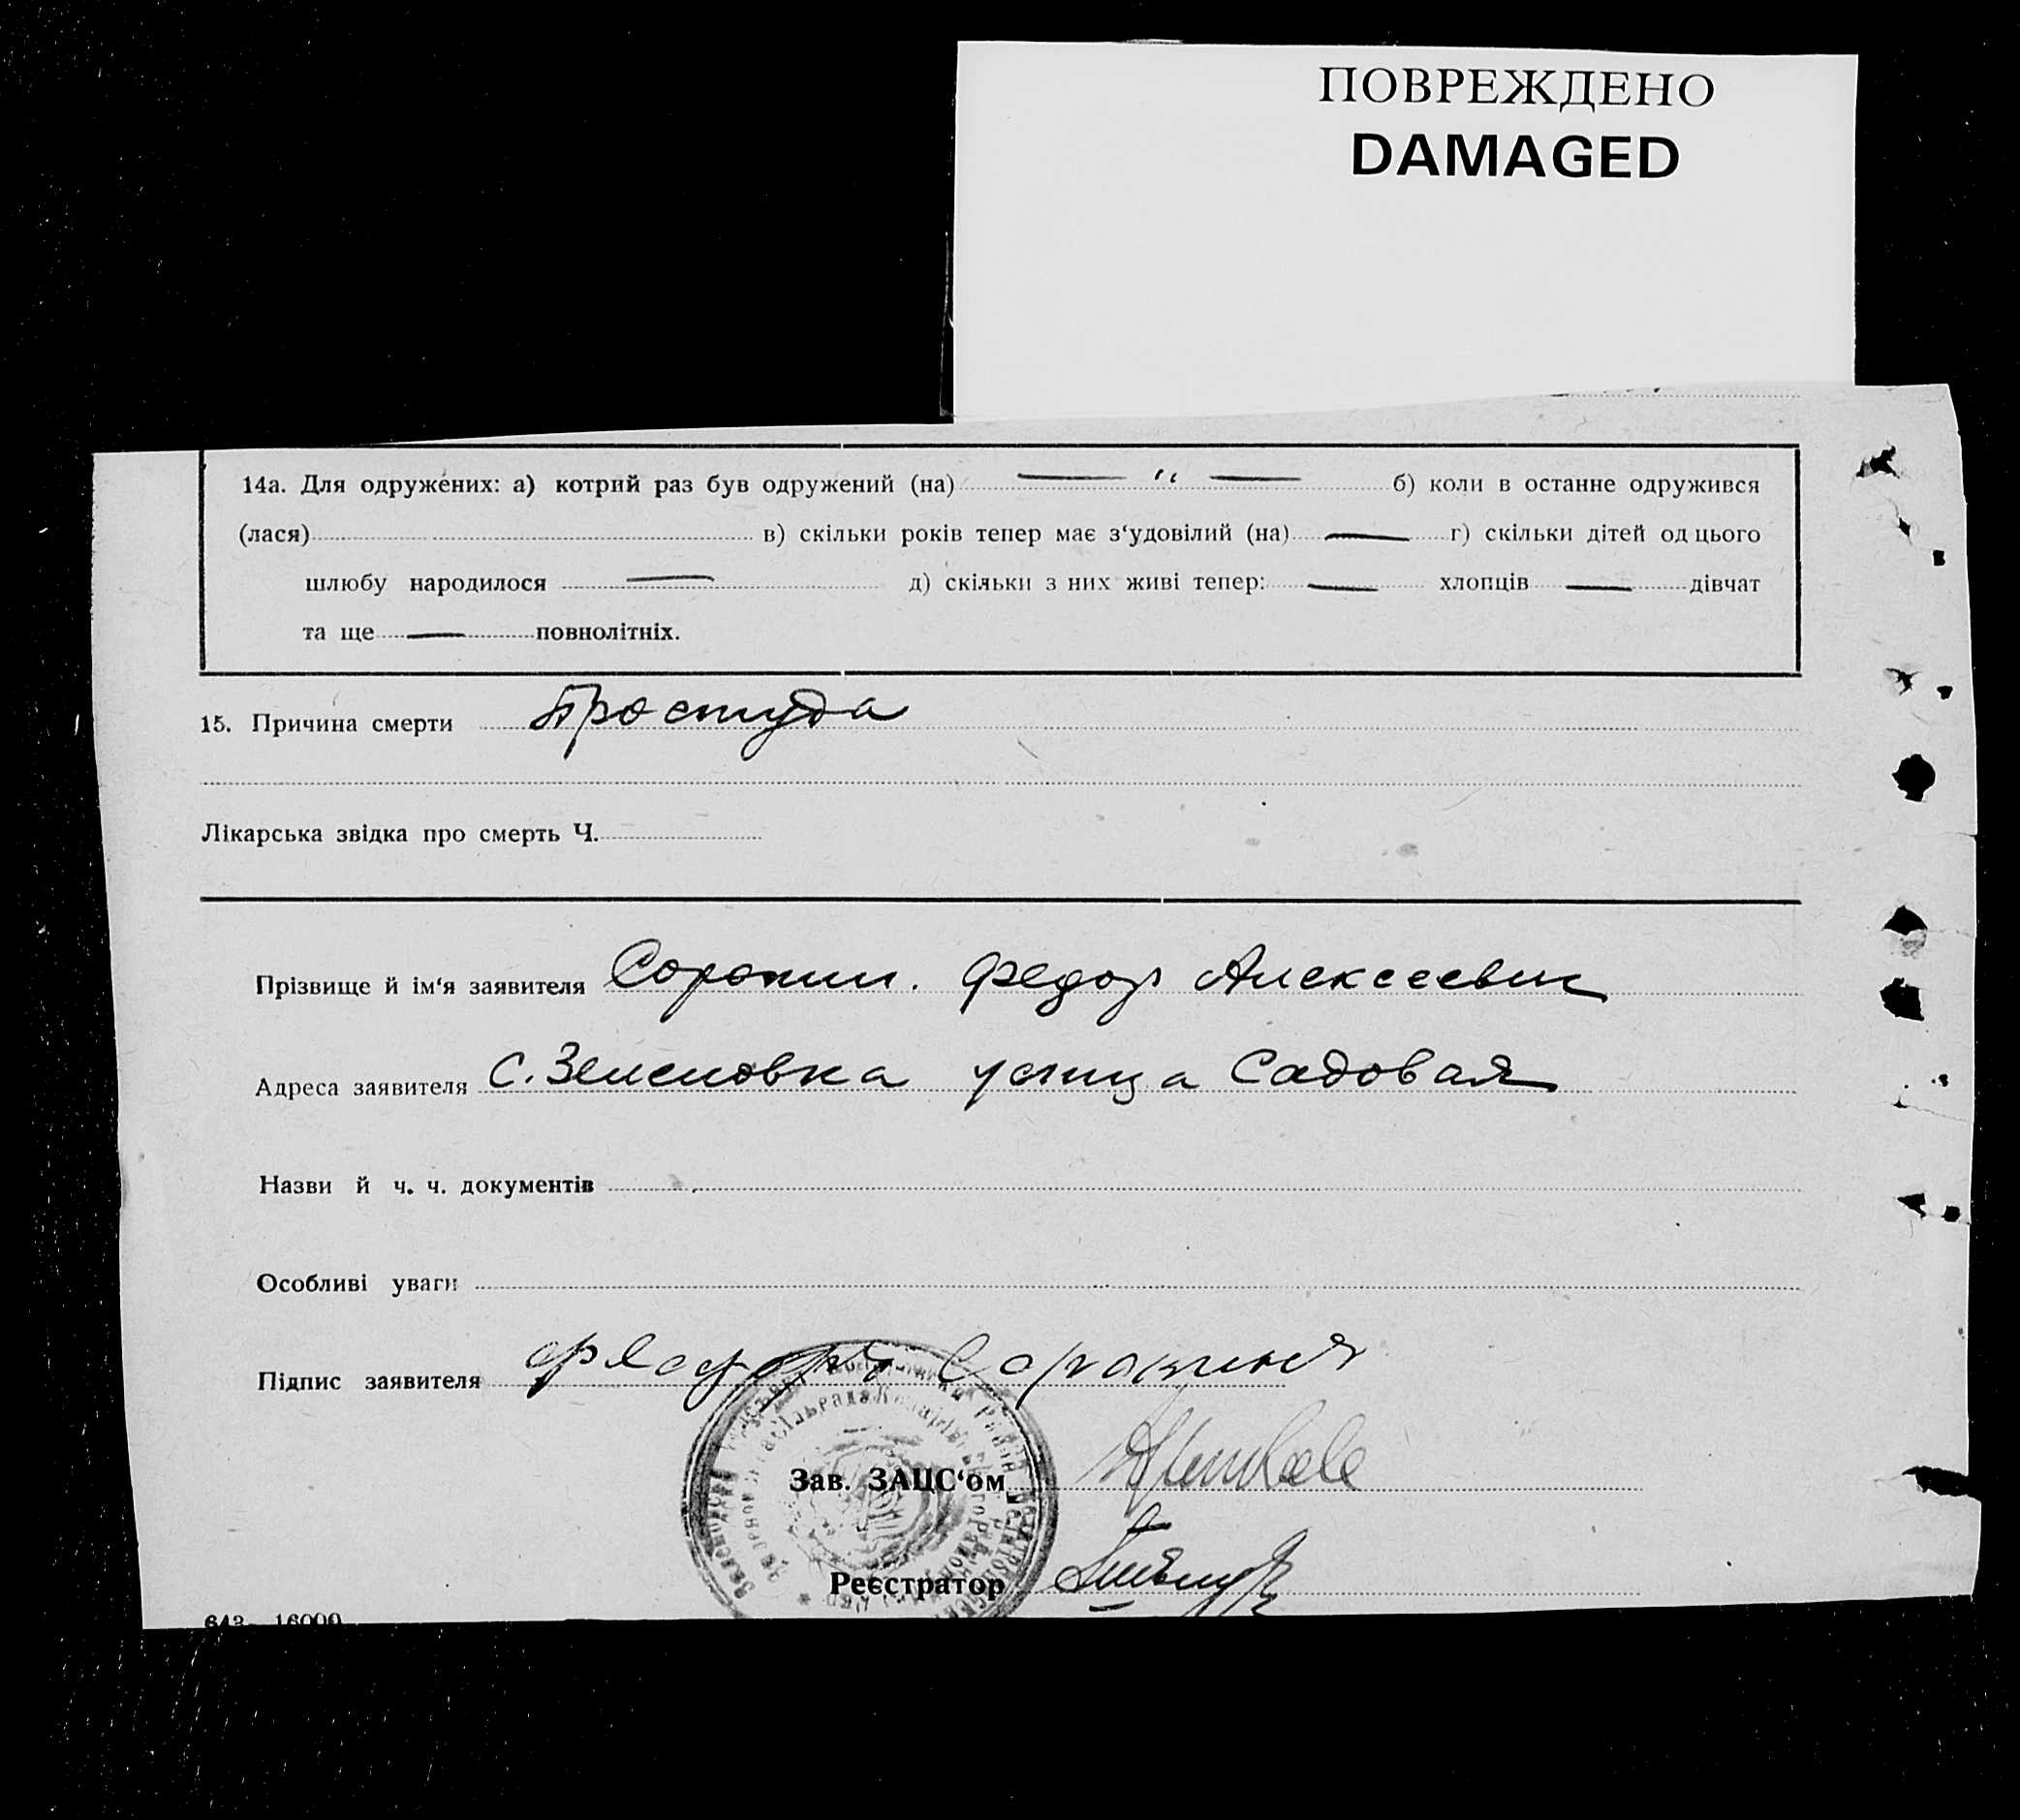 ПОВРЕЖДЕНО
DAMAGED
14а. Для одружених: а) котрий раз був одружений (на) — " — б) коли в останне одружився
(лася) в) скільки років тепер має з‘удовілий (на) — г) скільки дітей од цього
шлюбу народилося — д) скільки з них живі тепер: — хлопців — дівчат
та ще — повнолітніх.
15. Причина смерти Простуда
Лікарська звідка про смерть Ч.
Прізвище й ім‘я заявителя Сорокин. Федор Алексеевич
Адреса заявителя с. Зеленовка улица Садовая
Назви й ч. ч. документів
Особливі уваги
Підпис заявителя
Зав. ЗАЦС‘ом
Реєстратор
643—16000